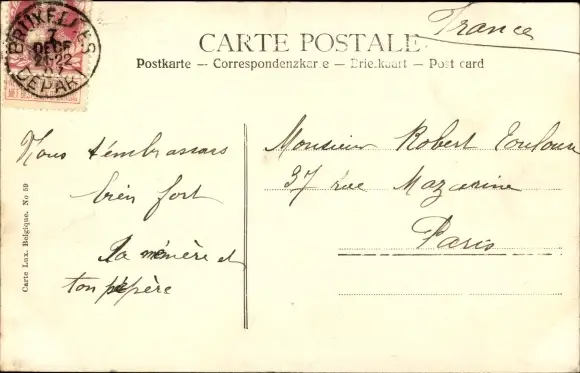 BRUXELLES
7
DECE
21-22
07
DEPART
France
CARTE POSTALE
Postkarte — Correspondenzkarte — Briefkaart — Post card
Nous t'embrassons
bien fort
ta mémère et
ton pépère
Monsieur Robert Toulouse
37 rue Mazarine
Paris
Carte Lux. Belgique. No 59